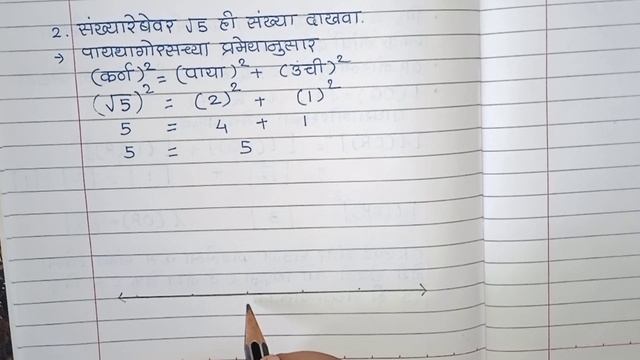 2. संख्यारेषेवर √5 ही संख्या दाखवा.
→ पायथागोरसच्या प्रमेयानुसार
(कर्ण)² = (पाया)² + (उंची)²
(√5)² = (2)² + (1)²
5 = 4 + 1
5 = 5